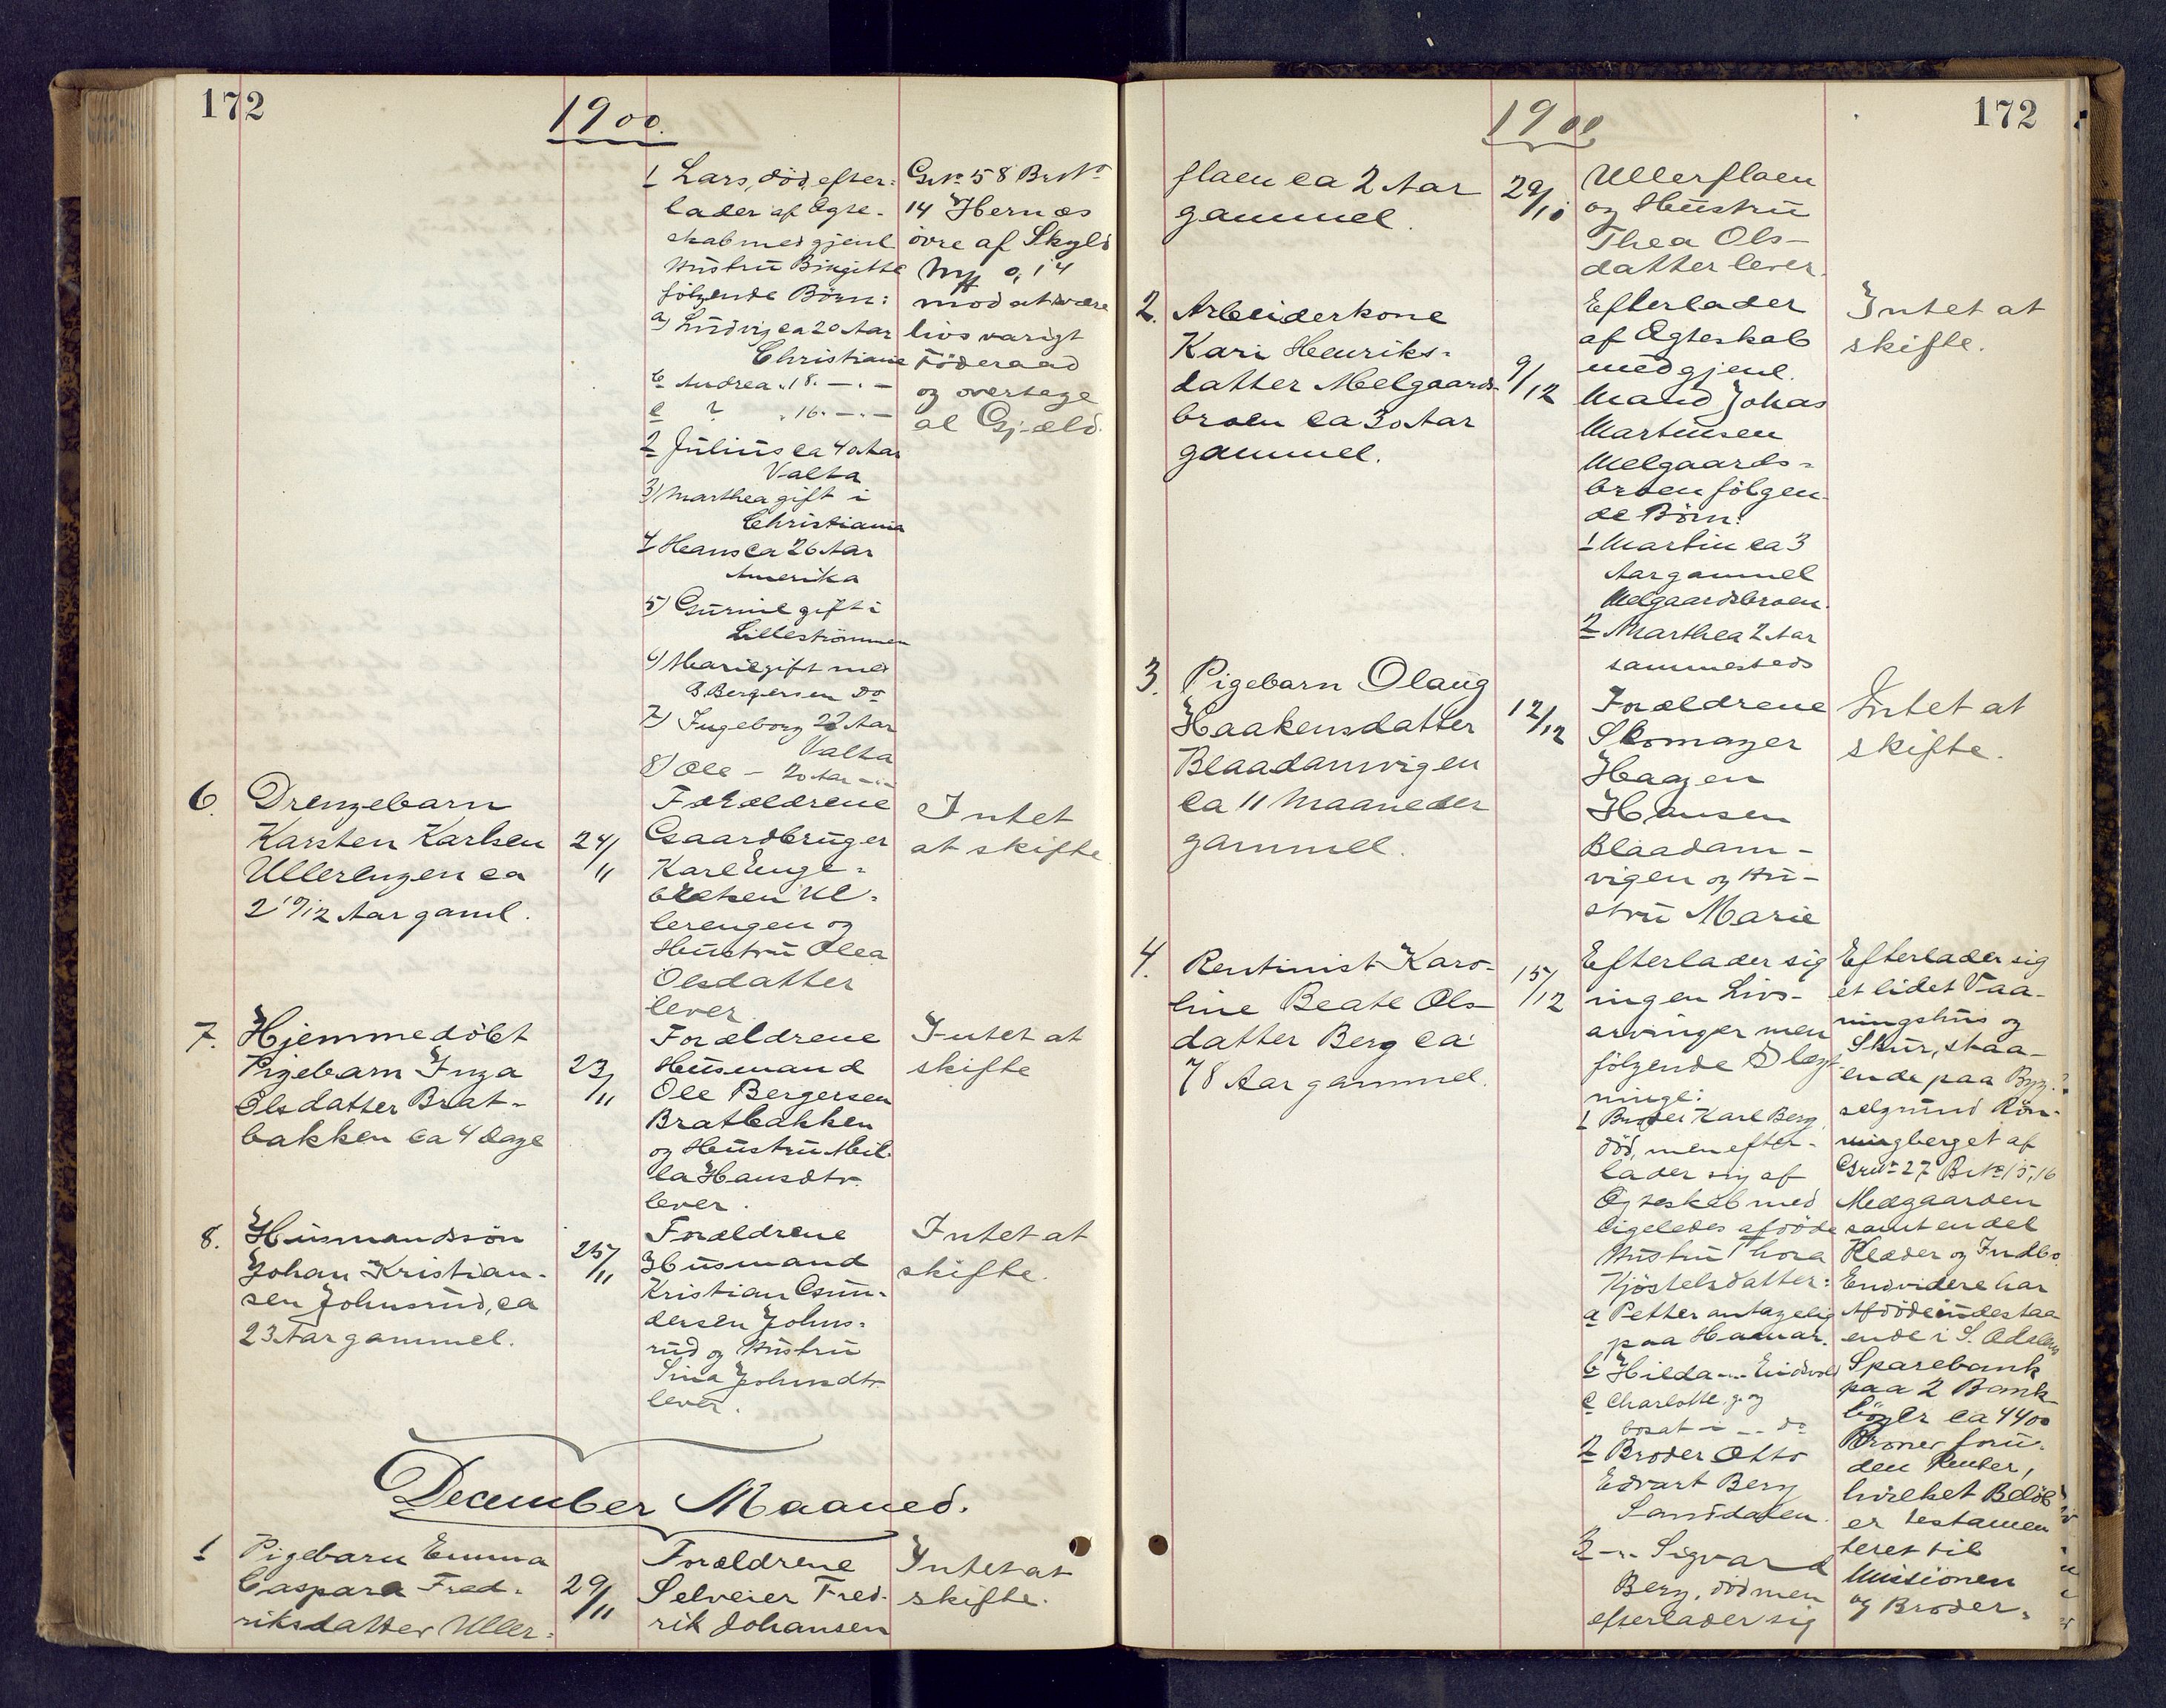 172
1900.
1 Lars, död, efter-
lader af Ægte-
skab med gjenl
Hustru Birgitte
följende Börn:
a) Ludvig ca 20 Aar
Christiania
b Andrea " 18. — . —
c ? " 16. — . —
2 Julius ca 40 Aar
Valta
3) Marthea gift i
Christiania
4 Hans ca 26 Aar
Amerika
5) Gurine gift i
Lilleströmmen
6) Marie gift med
B Bergersen Do
7) Ingeborg 22 Aar
Valta
8) Ole — 20 Aar — . —
Gr№ 58 Br№
14 Hernæs
övre af Skyld
Mk 0,14
mod at være
livsvarigt
Föderaad
og overtage
al Gjæld.
6. Drengebarn
Karsten Karlsen
Ullerengen ca
2 10/12 Aar gaml.
24/11
Forældrene
Gaardbruger
Karl Enge-
bretsen Ul-
lerengen og
Hustru Olea
Olsdatter
lever
Intet
at skifte
7. Hjemmedöbt
Pigebarn Inga
Olsdatter Brat-
bakken ca 4 Dage
23/11
Forældrene
Husmand
Ole Bergersen
Bratbakken
og Hustru Mil-
la Hansdtr.
lever.
Intet at
skifte
8. Husmandssön
Johan Kristian-
sen Johnsrud, ca
23 Aar gammel.
25/11
Forældrene
Husmand
Kristian Gun-
dersen Johns-
rud og Hustru
Sina Johnsdtr
lever.
Intet at
skifte.
December Maaned.
1 Pigebarn Emma
Caspara Fred-
riksdatter Uller-
29/11
Forældrene
Selveier Fred-
rik Johansen
Intet at
skifte.
1900
172
flaen ca 2 Aar
gammel.
29/11
Ullerflaen
og Hustru
Thea Ols-
datter lever.
2. Arbeiderkone
Kari Henriks-
datter Melgaards-
broen ca 30 Aar
gammel.
9/12
Efterlader
af Ægteskab
med gjenl.
Mand Johas
Martinsen
Melgaards-
broen fölgen-
de Börn:
1 Martin ca 3
Aar gammel
Melgaardsbroen.
2 Marthea 2 Aar
sammesteds
Intet at
skifte.
3. Pigebarn Olaug
Haakensdatter
Blaadamvigen
ca 11 Maaneder
gammel.
12/12
Forældrene
Skomager
Haagen
Hansen
Blaadam-
vigen og Hu-
stru Marie
Intet at
skifte.
4. Rentinist Karo-
line Beate Ols-
datter Berg ca
78 Aar gammel.
15/12
Efterlader sig
ingen Livs-
arvinger men
fölgende Slægt-
ninge:
1 Broder Karl Berg,
död, men efter-
lader sig af
Ægteskab med
ligeledes afdöde
Hustru Thora
Kjöstelsdatter:
a Petter antagelig
paa Hamar.
b Hilda — " — Eidsvold
c Charlotte, g. og
bosat i — " — do
2 Broder Otto
Edvart Berg
Sanddalen.
3 — " — Sigvard
Berg, död men
efterlader sig
Efterlader sig
et lidet Vaa-
ningshus og
Skur, staa-
ende paa Byg-
selgrund Rön-
ningberget af
Gr№ 27 Br№ 15,16
Melgaarden
samt en del
Klæder og Indbo.
Endvidere har
Afdöde indestaa
ende i S. Odalens
Sparebank
paa 2 Bank-
böger ca 4400
Kroner foru-
den Renter,
hvilket Belöb
er testamen
teret til
Missionen
og Broder-